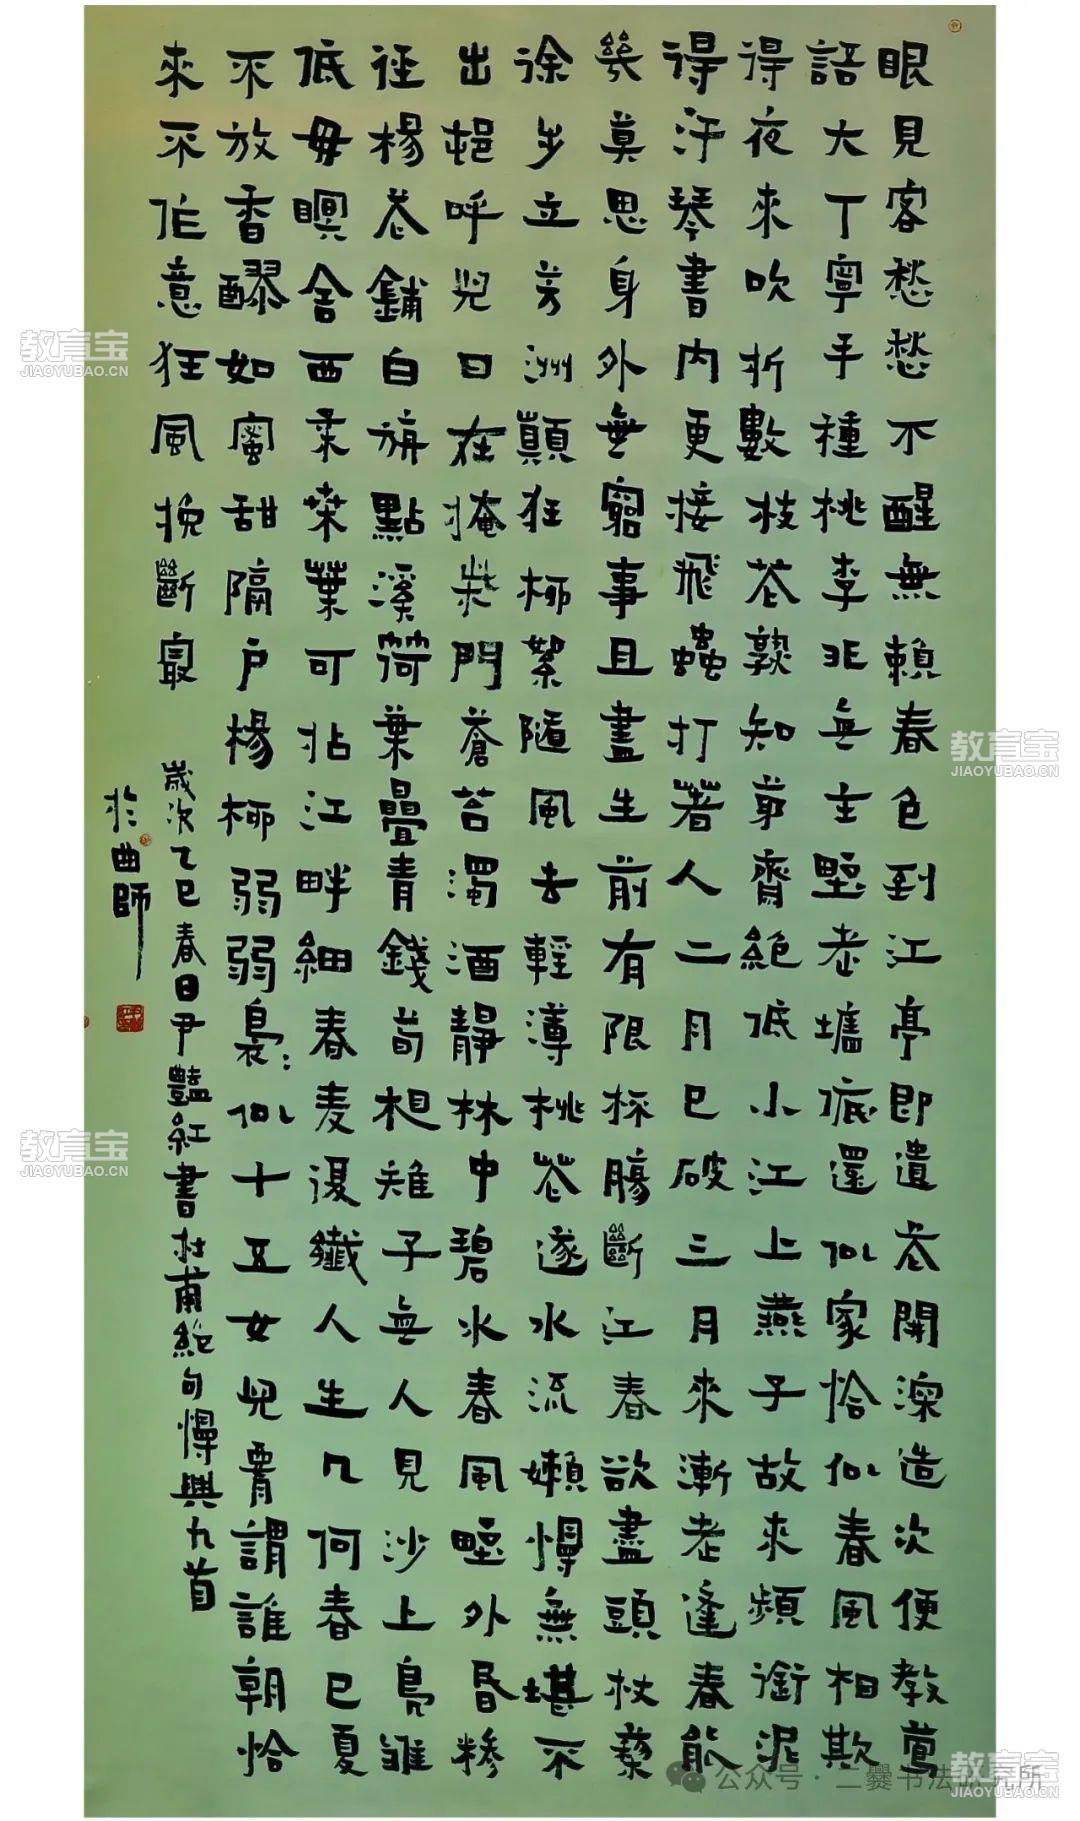 眼見客愁愁不醒無賴春色到江亭即遣花開深造次便教鶯
語大丁寧手種桃李非無主野老墻底還似家恰似春風相欺
得夜來吹折數枝花熟知茅齋絕低小江上燕子故來頻銜泥
得汙琴書內更接飛蟲打著人二月已破三月來漸老逢春能
幾莫思身外無窮事且盡生前有限杯腸斷江春欲盡頭杖藜
徐步立芳洲顛狂柳絮隨風去輕薄桃花逐水流懶慢無堪不
出邨呼兒日在掩柴門蒼苔濁酒靜林中碧水春風野外昏糝
徑楊花鋪白旃點溪荷葉疊青錢筍根雉子無人見沙上鳧雛
低毋瞑舍西柔桑葉可拈江畔細春麦復纖人生几何春已夏
不放香醪如蜜甜隔户楊柳弱弱裊:似十五女兒腰謂誰朝恰
來不作意狂風挽斷最
歲次乙巳春日尹豔紅書杜甫絕句慢興九首
於曲師
教育宝
JIAOYUBAO.CN
教育宝
JIAOYUBAO.CN
教育宝
JIAOYUBAO.CN
教育宝
JIAOYUBAO.CN
公众号·二爨书法研究所